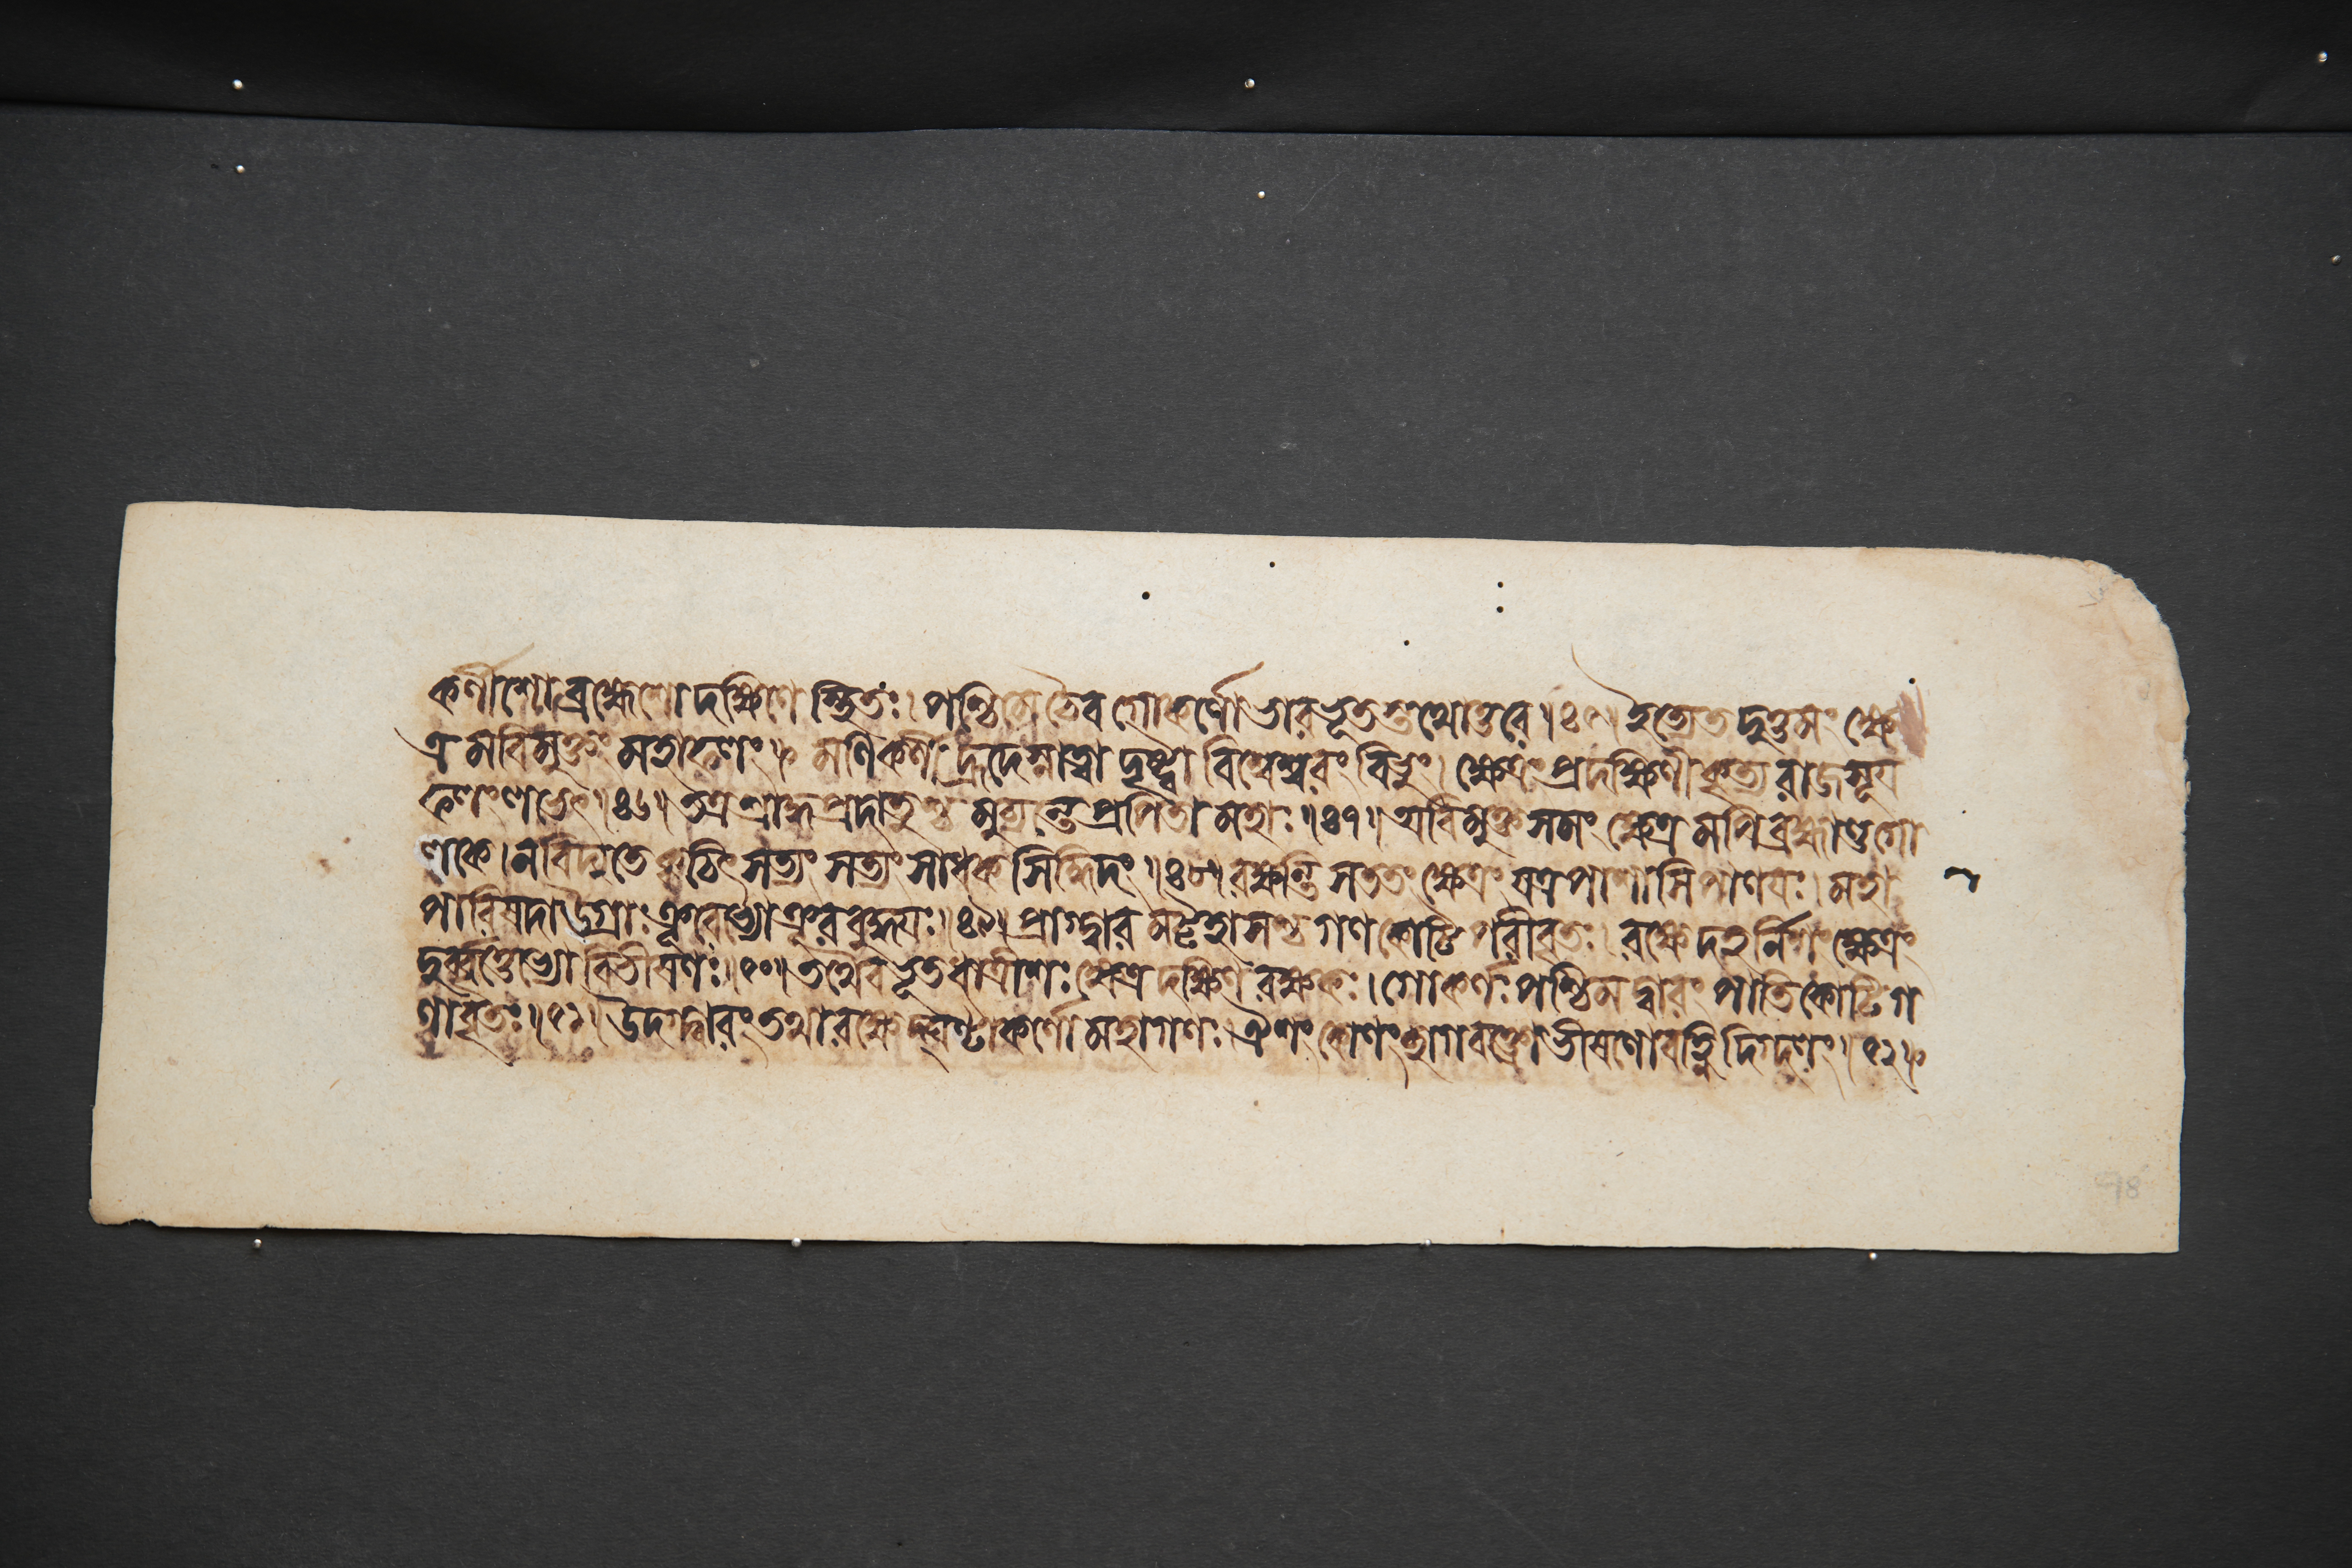 কর্ণীশোব্রহ্মেশোদক্ষিণেস্থিতঃ। পশ্চিমেচৈবগোকর্ণোভারভূতস্তথোত্তরে॥৪৫॥ইত্যেতদুত্তমংক্ষে
ত্রমবিমুক্তংমহাফলং॥ মণিকর্ণীহ্রদেস্নাত্বাদৃষ্ট্বাবিশ্বেশ্বরংবিভুং। ক্ষেত্রংপ্রদক্ষিণীকৃত্যরাজসূয
ফলংলভেৎ॥৪৬॥তত্রশ্রাদ্ধপ্রদাতুশ্চমুচ্যন্তেপ্রপিতামহাঃ॥৪৭॥অবিমুক্তসমংক্ষেত্রমপিব্রহ্মাণ্ডগো
লকে।নবিদ্যতেক্বচিৎসত্যংসত্যংসাধকসিদ্ধিদং॥৪৮॥রক্ষন্তিসততংক্ষেত্রংযত্রপাশাসিপাণযঃ।মহা
পারিষদাউগ্রাঃক্রূরেভ্যোঽক্রূরবুদ্ধযঃ॥৪৯॥প্রাগ্দ্বারমট্টহাসশ্চগণকোটিপরিবৃতঃ।রক্ষেদহর্নিশংক্ষেত্রং
দুর্ব্বৃত্তেভ্যোবিভীষণঃ॥৫০॥তথৈবভূতধাত্রীশঃক্ষেত্রদক্ষিণরক্ষকঃ।গোকর্ণঃপশ্চিমদ্বারংপাতিকোটিগ
ণাবৃতঃ॥৫১॥উদগ্দ্বারংতথারক্ষেদ্ঘণ্টাকর্ণোমহাগণঃ।ঐশংকোণংছাগবক্ত্রোভীষণোবহ্নিদিগ্দলং॥৫২॥
98